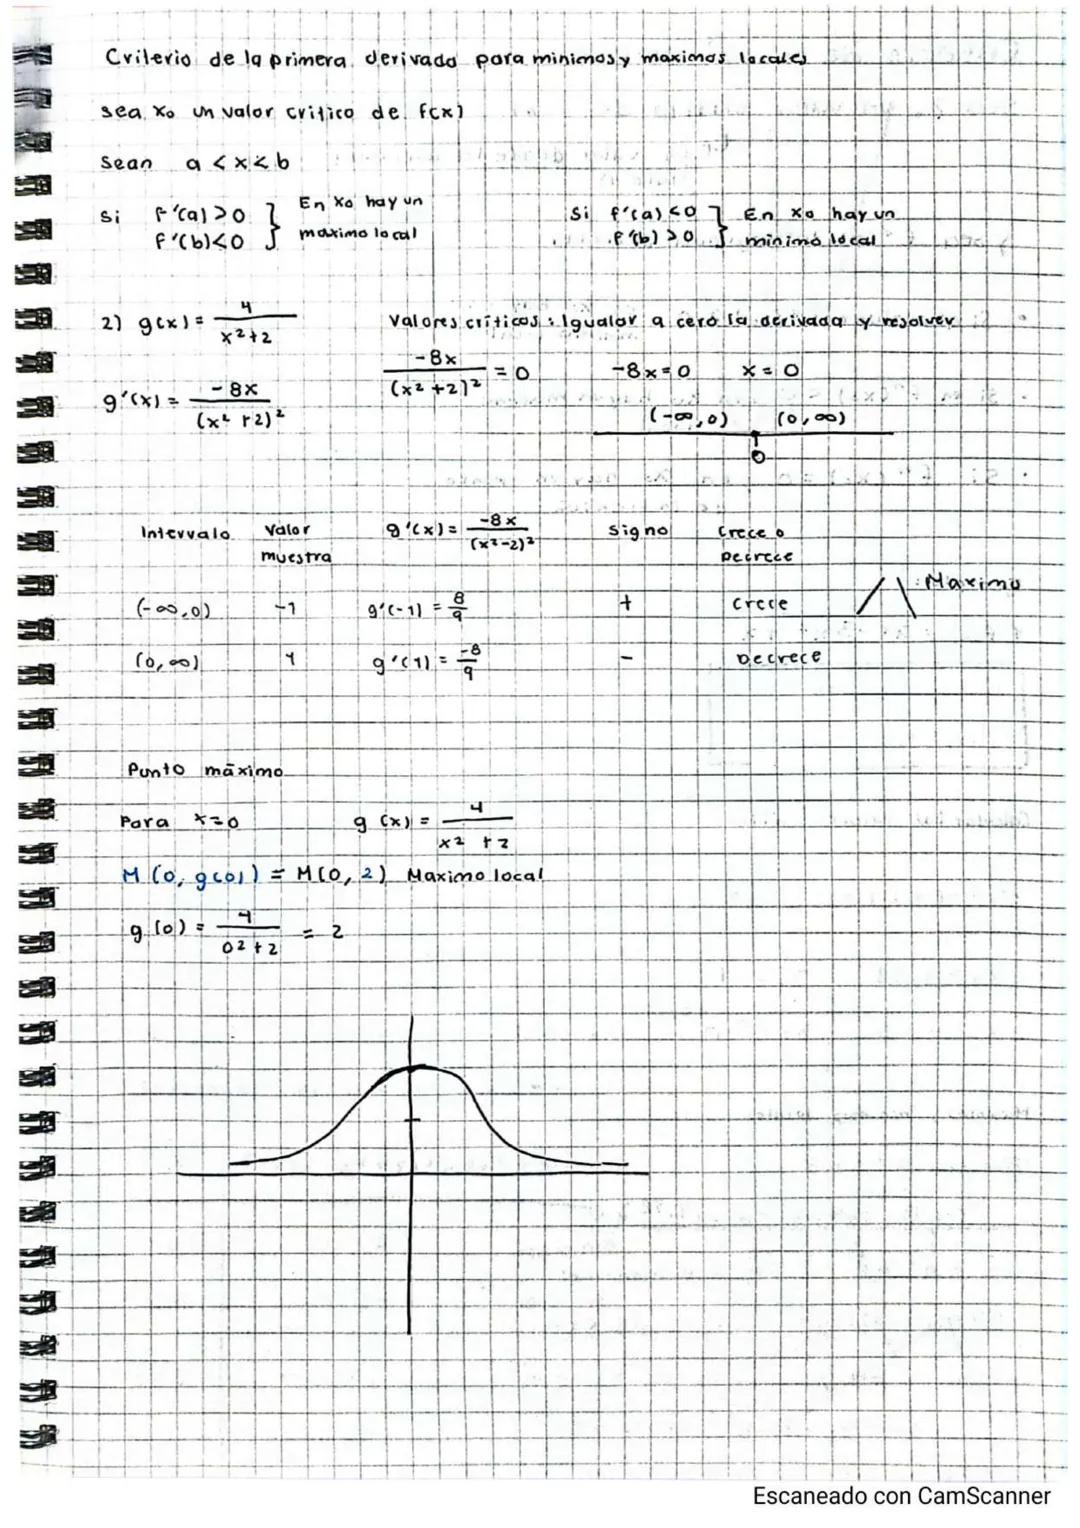 Criterio de la primera derivada para minimos y maximos locales
sea x₀ un valor critico de f(x)
Sean a < x < b
Si f'(a) > 0 } En x₀ hay un
f'(b) < 0 } maximo local
Si f'(a) < 0 } En x₀ hay un
f'(b) > 0 } minimo local
2) g(x) = 4 / (x² + 2)
Valores criticos : Igualar a cero la derivada y resolver
g'(x) = -8x / (x² + 2)²
-8x / (x² + 2)² = 0
-8x = 0
x = 0
(-∞, 0) (0, ∞)
0
Intervalo Valor muestra g'(x) = -8x / (x² - 2)² Signo Crece o Decrece
(-∞, 0) -1 g'(-1) = 8/9 + Crece
Maximo
(0, ∞) 1 g'(1) = -8/9 - Decrece
Punto máximo
Para x = 0 g (x) = 4 / (x² + 2)
M (0, g(0)) = M(0, 2) Maximo local
g (0) = 4 / (0² + 2) = 2
Escaneado con CamScanner